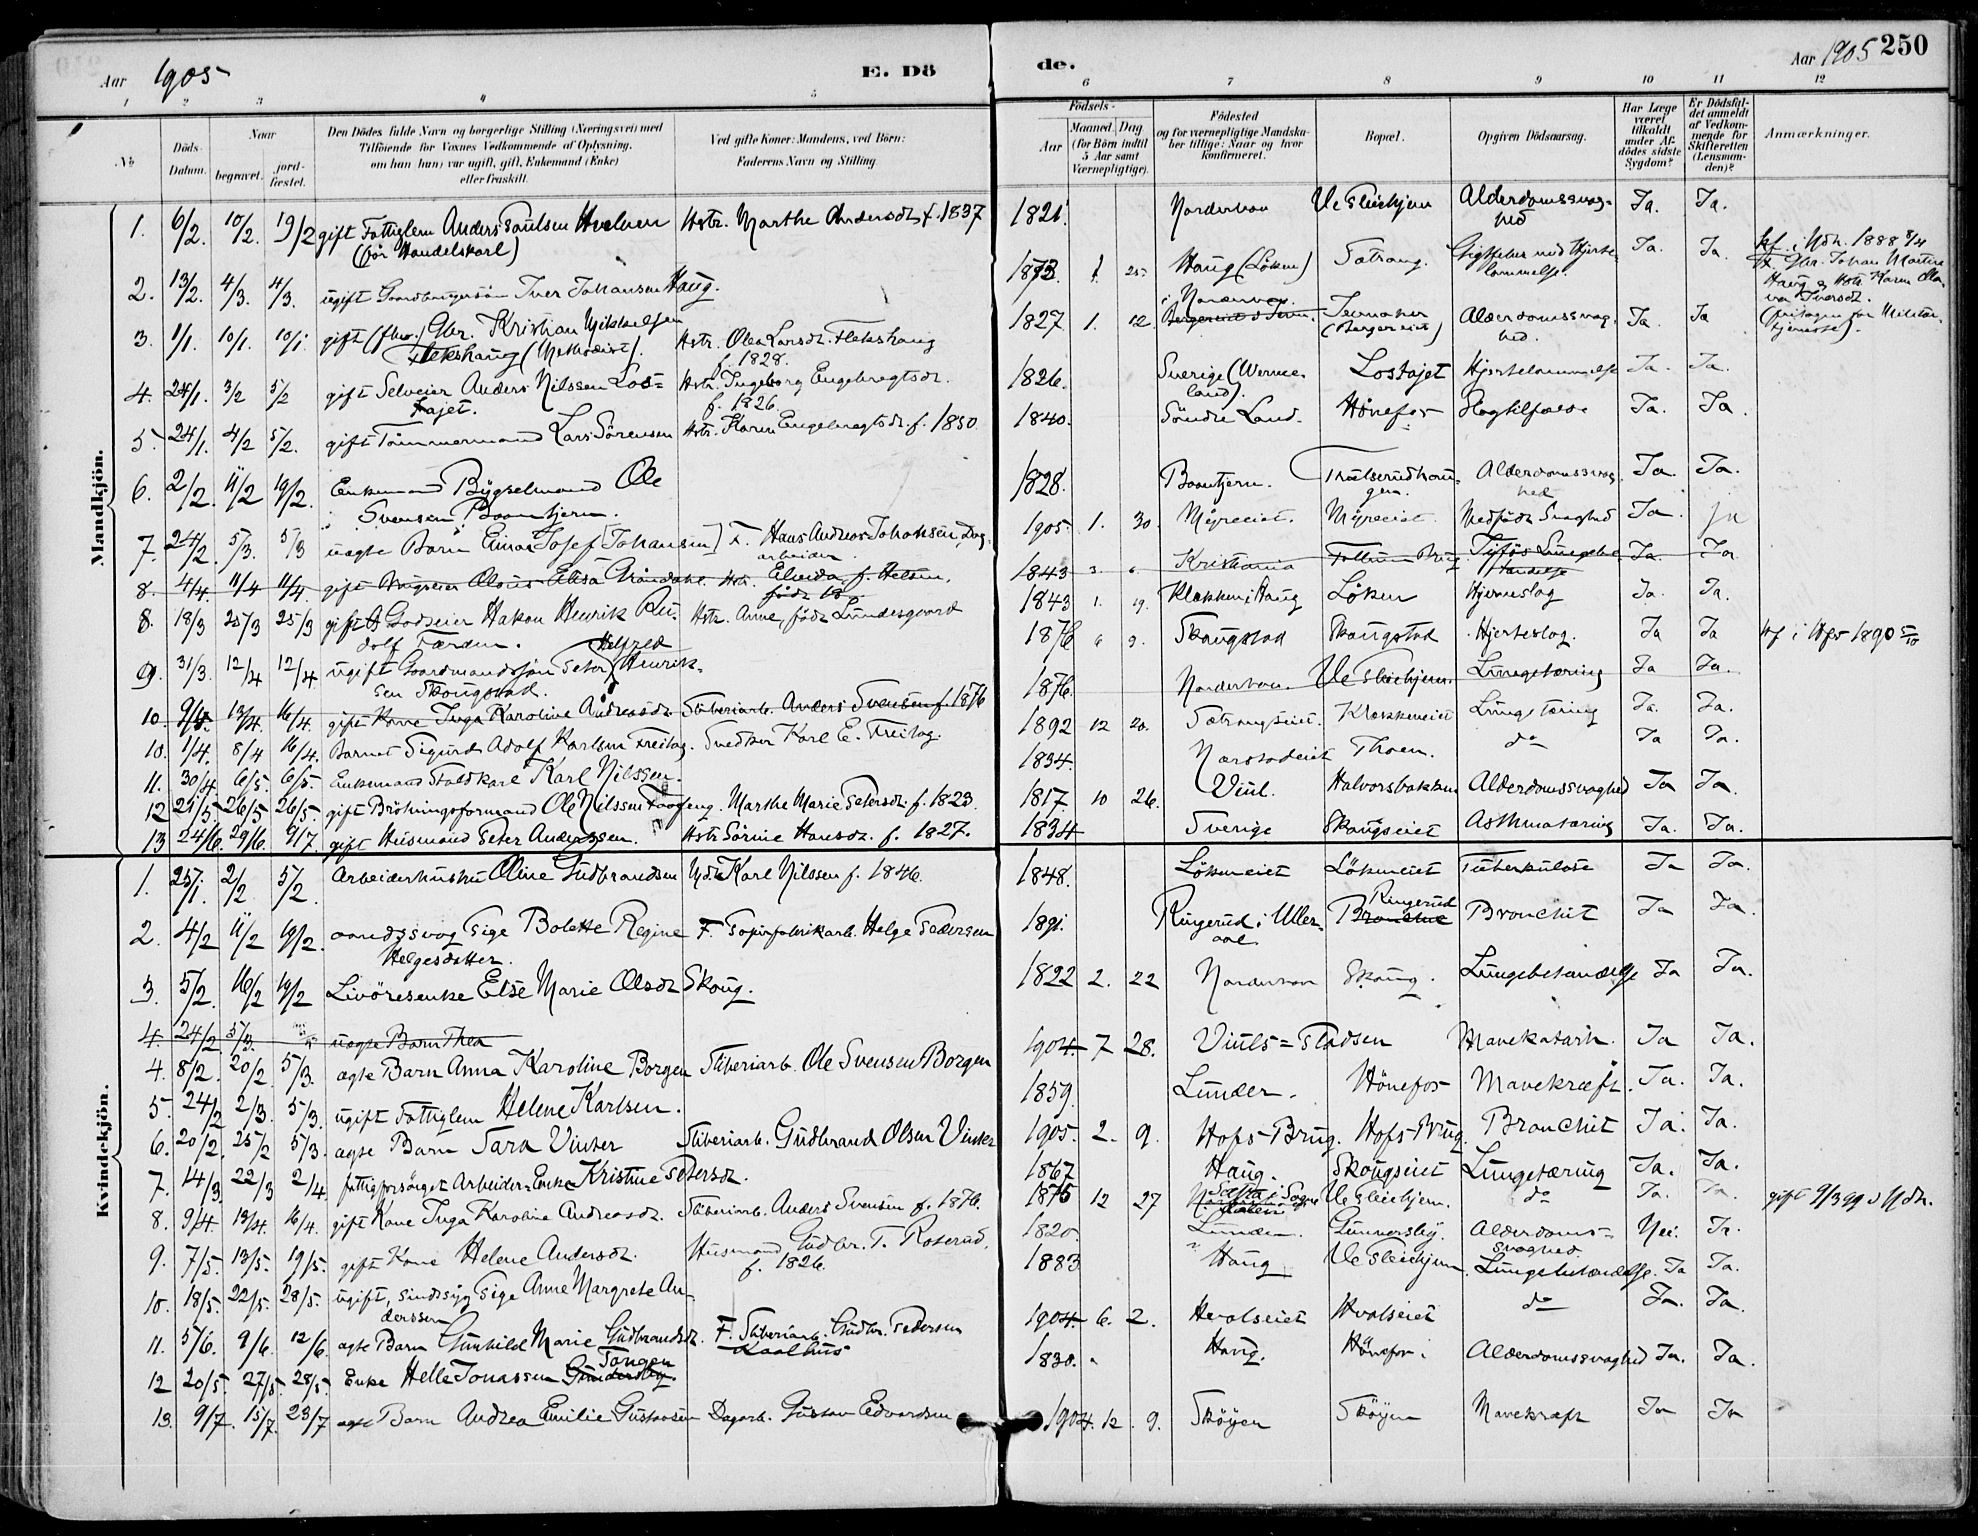 Aar 1905 E. Dö
de. Aar 1905 250
1 2 3 4 5 6 7 8 9 10 11 12
№
Döds-Datum.
Naar begravet.
jord-fæstet.
Den Dödes fulde Navn og borgerlige Stilling (Næringsvei) med Tilföiende for Voxnes Vedkommende af Oplysning, om han (hun) var ugift, gift, Enkemand (Enke) eller fraskilt.
Ved gifte Koner: Mandens, ved Börn: Faderens Navn og Stilling.
Födsels-
Aar
Maaned. Dag (for Börn indtil 5 Aar samt Værnepligtige).
Födested og for værnepligtige Mandskaber tillige: Naar og hvor konfirmeret.
Bopæl.
Opgiven Dödsaarsag.
Har Læge været tilkaldt under Afdödes sidste Sygdom?
Er Dödsfaldet anmeldt af Vedkommende for Skifteretten (Lensmanden)?
Anmærkninger.
Mandkjön.
1. 6/2. 10/2. 19/2 gift Fattiglem Anders Paulsen Hvelven (för Handelskarl) Hstr. Marthe Andersdt. f. 1837 1821. Norderhov Ve Pleiehjem Alderdomssvaghed Ja. Ja.
2. 13/2. 4/3. 4/3. ugift Gaardbrugersön Iver Johansen Haug. 1873 1 25 Haug (Löken) i Norderhov. Sætrang. Gigtfeber med Hjertelammelse. Ja. Ja. kf. i Ndh. 1888 8/4 F. Gbr. Johan Martin Haug & Hstr. Karen Oliva Iversdt. (fritagen for Militærtjeneste)
3. 1/1. 10/1. 10/1 gift (fhv.) Gbr. Kristian Mikkelsen Flekshaug (Methodist). Hstr. Olea Larsdt. Flekshaug f. 1828. 1827 1. 12. Jevnaker (Bergereiet) Alderdomssvaghed. Ja. Ja
4. 24/1. 3/2 5/2 gift Selveier Anders Nilssen Lostajet. Hstr. Ingeborg Engebregtsdt. f. 1826 1826. Sverige (Wermeland). Lostajet Hjertelammelse Ja. Ja.
5. 24/1. 4/2 5/2. gift Tömmermand Lars Sörensen Hstr. Karen Engebregtsdt. f. 1850. 1840. Söndre Land. Hönefos Slagtilfælde Ja. Ja.
6. 2/2. 11/2 19/2. Enkemand Bygselmand Ole Svensen Baantjern. 1828. Baantjern. Alderdomssvaghed Ja. Ja.
7. 24/2. 5/3. 5/3 uægte Barn Einar Josef Johansen F. Hans Andreas Johansen, Dagarbeider. 1905. 1. 30. Myreeiet. Myreeiet. Medfödt Svaghed Ja. Ja
8. 4/4. 11/4 11/4. gift 1843 Kristiania Follum Brug Tyfös Lungebetændelse Ja. Ja
8. 18/3 25/3 25/3 gift Godseier Hakon Henrik Rudolf Færden. Hstr. Anne, födt Lundesgaard 1843 1. 19. Klækken i Haug Löken Hjerneslag Ja. Ja.
9. 31/3. 12/4 12/4. ugift Gaardmandssön Peter Helfred Henriksen Skougstad. 1876 9. Skougstad Skougstad Hjerteslag. Ja Ja kf i Hfs 1890 5/10
10. 9/4. 13/4. 16/4. gift Kone Inga Karoline Andreasdt. Sliberiarb. Anders Svensen f. 1876 1876. Norderhov. Ve Pleiehjem. Lungetæring Ja Ja.
10. 1/4. 8/4 16/4. Barnet Sigurd Adolf Karlsen Freitag. Snedker Karl E. Freitag. 1892 12 20. Sætrangseiet. Klækkeneiet Lungetæring Ja. Ja.
11. 30/4 6/5. 6/5. Enkemand Staldkarl Karl Nilssen. 1834. Thoen. do Ja Ja.
12 21/5. 26/5 26/5. gift Brötningsformand Ole Nilssen Marthe Marie Petersdt. f. 1823. 1817. 10 26. Viul. Halvorsbakken Alderdomssvaghed Ja Ja
13 24/6. 29/6. 9/7. gift Husmand Peter Anderssen. Hstr Sörine Hansdt. f. 1827. 1834 Sverige Skougseiet Asthmatæring Ja. Ja.
Kvindekjön.
1. 25/1. 2/2 5/2. Arbeiderhustru Oline Gudbrandsen Mdt. Karl Nilssen f. 1846. 1848. Lökeneiet Lökeneiet Tuberkulose Ja Ja.
2. 4/2 11/2 19/2. aandssvag Pige Bolette Regine Helgesdatter. F. Papirfabrikarb. Helge Pedersen 1891. Ringerud i Ulleraal. Ringerud Bronchit Ja Ja.
3. 5/2. 16/2 19/2 Livöresenke Else Marie Olsdt Skoug. 1822 2. 22 Norderhov Skoug. Lungebetændelse Ja Ja.
4. 24/2. 5/3. uægte Barn Thea
4. 8/2. 20/2. 5/3. ægte Barn Anna Karoline Borgen Sliberiarb. Ole Svensen Borgen 1904. 7 28. Viuls=Pladsen Mavekatarh. Ja Ja.
5. 24/2 2/3. 5/3. ugift Fattiglem Helene Karlsen. 1859. Lunder. Hönefos Mavekræft. Ja. Ja.
6. 20/2. 25/2 5/3. ægte Barn Sara Vinter Sliberiarb. Gudbrand Olsen Vinter 1905. 2. 9. Hofs-Brug. Hofs-Brug. Bronchit Ja. Ja.
7. 14/3. 22/3 2/4. fattigforsörget Arbeider=Enke Kristine Petersdt. 1867 Haug. Skougseiet Lungetæring Ja. Ja.
8. 9/4. 13/4. 16/4. gift Kone Inga Karoline Andreasdt. Sliberiarb. Anders Svensen f. 1876. 1875 12 27 Ve Pleiehjem. do Ja. Ja. gift 9/3 99 i Ndh.
9. 7/5. 13/5. 19/5. gift Kone Helene Andersdt. Husmand Gudbr. T. Roserud. f. 1826. 1820. Lunder. Gunnersby. Alderdomssvaghed. Nei. Ja.
10. 18/5. 22/5. 28/5. ugift, sindssyg Pige Anne Margrete Anderssen 1883 Haug Ve Pleiehjem. Lungebetændelse. Ja Ja.
11. 5/6. 9/6. 12/6. ægte Barn Gunhild Marie Gudbrandsdt. F. Sliberiarb. Gudbr. Pedersen Kaalhus 1904. 6. 2. Hvalseiet Hvalseiet do Ja. Ja.
12 20/5. 27/5. 28/5. Enke Helle Tonassen Tangen 1830. Haug. Hönefos. Alderdomssvaghed Ja. Ja.
13. 9/7. 15/7. 23/7 ægte Barn Andrea Emilie Gustavsen Dagarb. Gustav Edvardsen 1904. 12. 9. Sköyen Sköyen Mavekræft Ja Ja